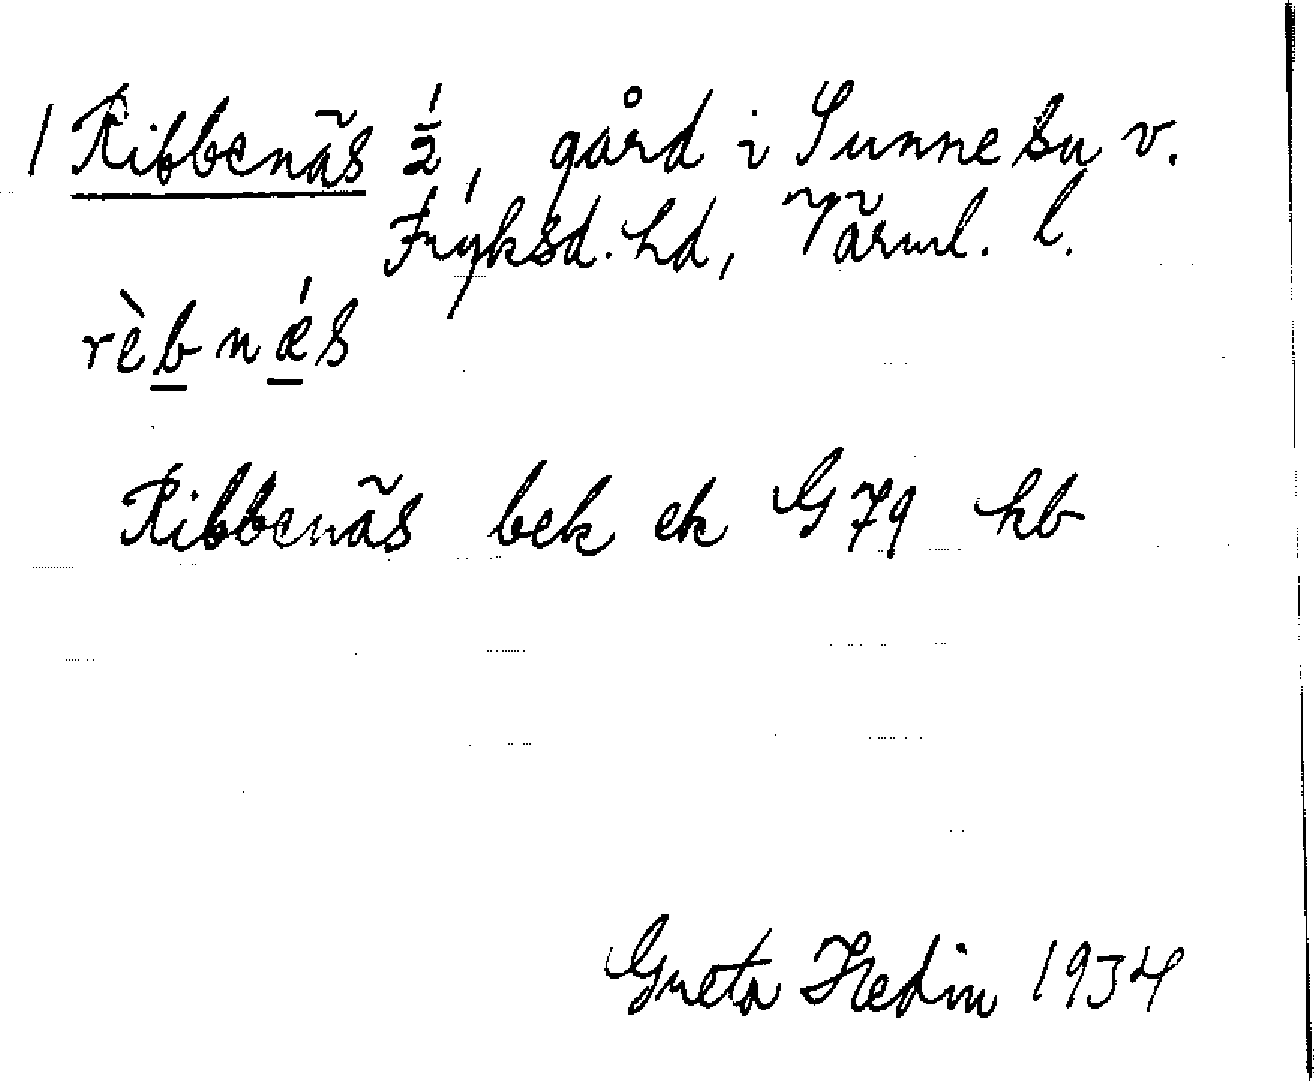 1 Ribbenäs 1/2, gård i Sunne sn v.
Fryksd. hd, Värml. l.
rèbnǽs
Ribbenäs bek ek G79 hb
Greta Hedin 1934